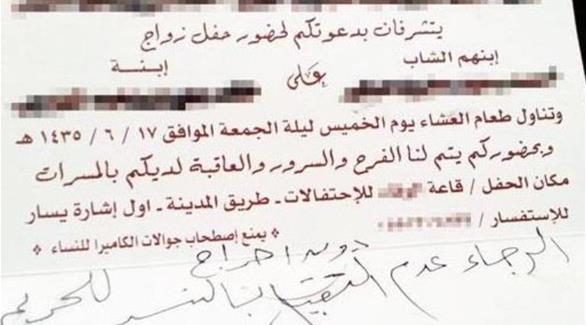 يتشرفان بدعوتكم لحضور حفل زواج
إبنهم الشاب على إبنة
وتناول طعام العشاء يوم الخميس ليلة الجمعة الموافق ١٧ / ٦ / ١٤٣٥ هـ
وبحضوركم يتم لنا الفرح والسرور والعاقبة لديكم بالمسرات
مكان الحفل / قاعة للإحتفالات - طريق المدينة - اول إشارة يسار
للإستفسار / * يمنع إصطحاب جوالات الكاميرا للنساء *
دون احراج
الرجاء عدم التقيد بالنسبة للحريم